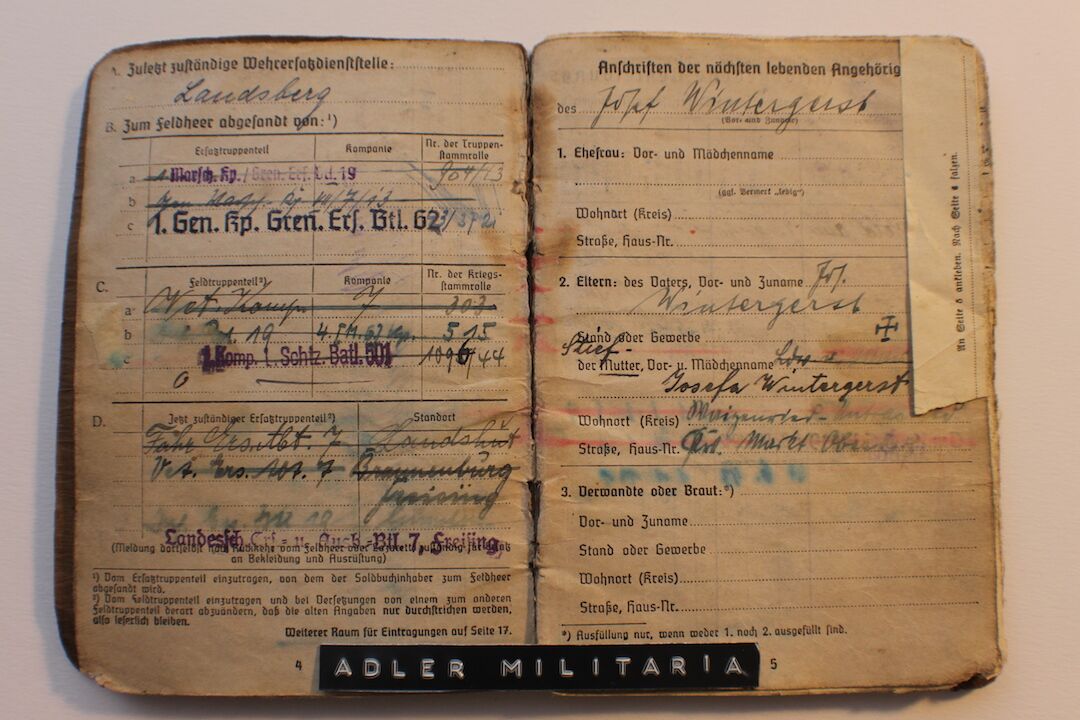 A. Zuletzt zuständige Wehrersatzdienststelle:
Landsberg
B. Zum Feldheer abgesandt von: ¹)
Ersatztruppenteil
Kompanie
Nr. der Truppen-
stammrolle
a
Marsch. Kp. / Gren. Ers. Btl. 19
904/43
b
c
1. Gen. Kp. Gren. Ers. Btl. 62
C.
Feldtruppenteil²)
Kompanie
Nr. der Kriegs-
stammrolle
a
Vet. Komp.
7
303
b
19
515
c
1. Komp. 1. Schtz. Batl. 501
1096/44
D.
Jetzt zuständiger Ersatztruppenteil²)
Standort
Fahr Ers. Abt. 7
Landshut
Vet. Ers. 7
Brannenburg
Freising
Landessch. Ers.- u. Ausb.-Btl. 7, Freising
(Meldung dortselbst nach Rückkehr vom Feldheer oder Lazarett, zuständig für Ersatz
an Bekleidung und Ausrüstung)
¹) Vom Ersatztruppenteil einzutragen, von dem der Soldbuchinhaber zum Feldheer
abgesandt wird.
²) Vom Feldtruppenteil einzutragen und bei Versetzungen von einem zum anderen
Feldtruppenteil derart abzuändern, daß die alten Angaben nur durchstrichen werden,
also leserlich bleiben.
Weiterer Raum für Eintragungen auf Seite 17.
4
Anschriften der nächsten lebenden Angehörig
des Josef Wintergerst
(Vor- und Zuname)
1. Ehefrau: Vor- und Mädchenname
(ggf. Vermerk „ledig“)
Wohnort (Kreis)
Straße, Haus-Nr.
2. Eltern: des Vaters, Vor- und Zuname Jos.
Wintergerst
Stand oder Gewerbe
Stief-
der Mutter, Vor- u. Mädchenname
Josefa Wintergerst
Wohnort (Kreis)
Straße, Haus-Nr. Markt
3. Verwandte oder Braut: *)
Vor- und Zuname
Stand oder Gewerbe
Wohnort (Kreis)
Straße, Haus-Nr.
*) Ausfüllung nur, wenn weder 1. noch 2. ausgefüllt sind.
5
An Seite 6 ankleben. Nach Seite 4 falzen.
ADLER MILITARIA